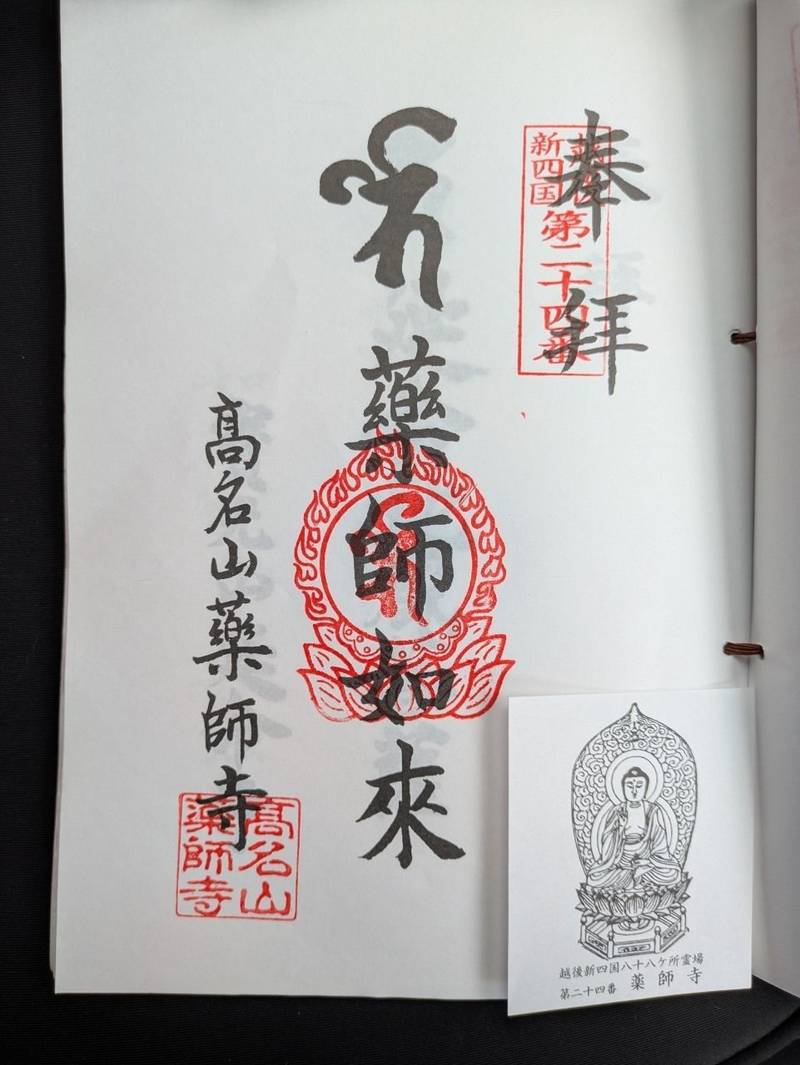 奉拝
越後
新四国
第二十四番
薬師如來
髙名山薬師寺
髙名山
薬師寺
越後新四国八十八ケ所霊場
第二十四番 薬師寺